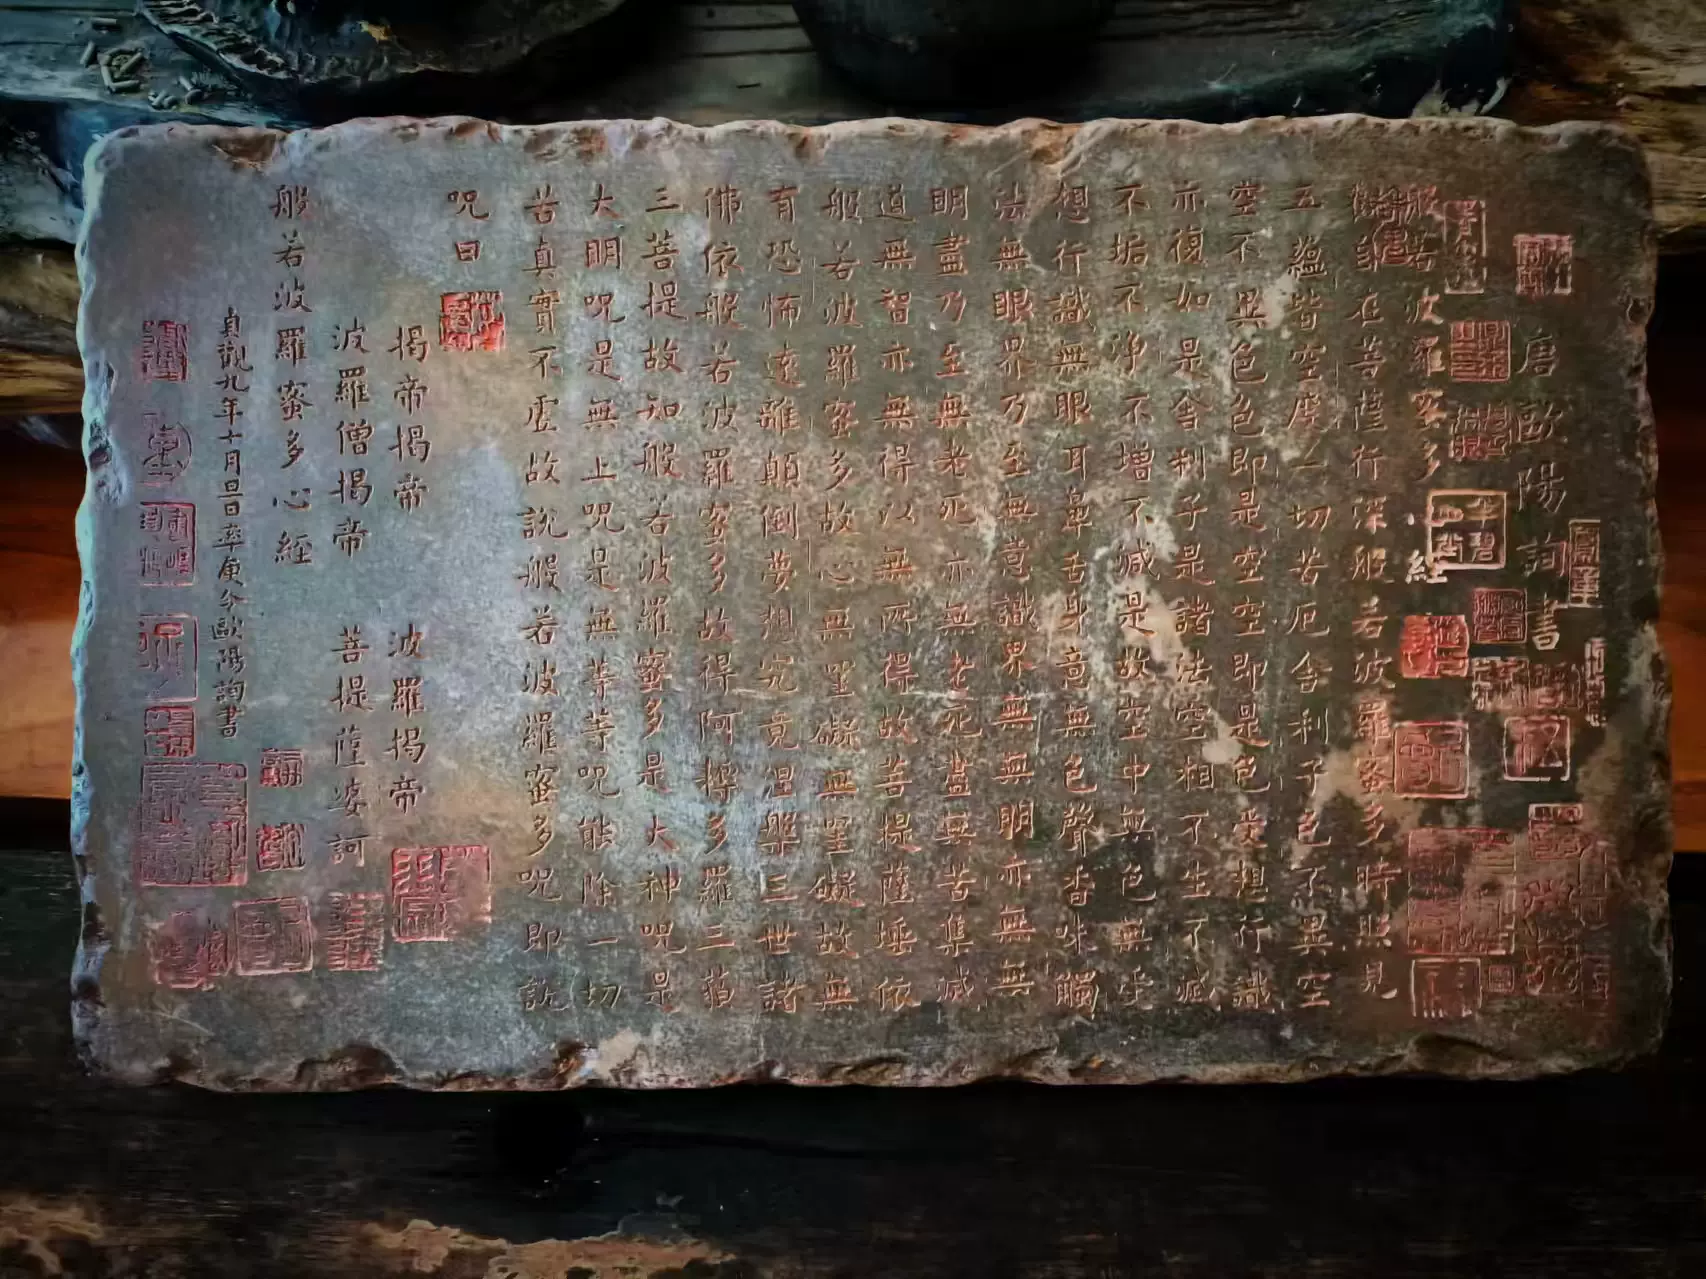 唐歐陽詢書
般若波羅蜜多心經
在菩薩行深般若波羅蜜多時照見
五蘊皆空度一切苦厄舍利子色不異空
空不異色色即是空空即是色受想行識
亦復如是舍利子是諸法空相不生不滅
不垢不淨不增不減是故空中無色無受
想行識無眼耳鼻舌身意無色聲香味觸
法無眼界乃至無意識界無無明亦無無
明盡乃至無老死亦無老死盡無苦集滅
道無智亦無得以無所得故菩提薩埵依
般若波羅蜜多故心無罣礙無罣礙故無
有恐怖遠離顛倒夢想究竟涅槃三世諸
佛依般若波羅蜜多故得阿耨多羅三藐
三菩提故知般若波羅蜜多是大神咒是
大明咒是無上咒是無等等咒能除一切
苦真實不虛故說般若波羅蜜多咒即說
咒曰
揭帝揭帝 波羅揭帝
波羅僧揭帝 菩提薩婆訶
般若波羅蜜多心經
貞觀九年十月旦日率更令歐陽詢書